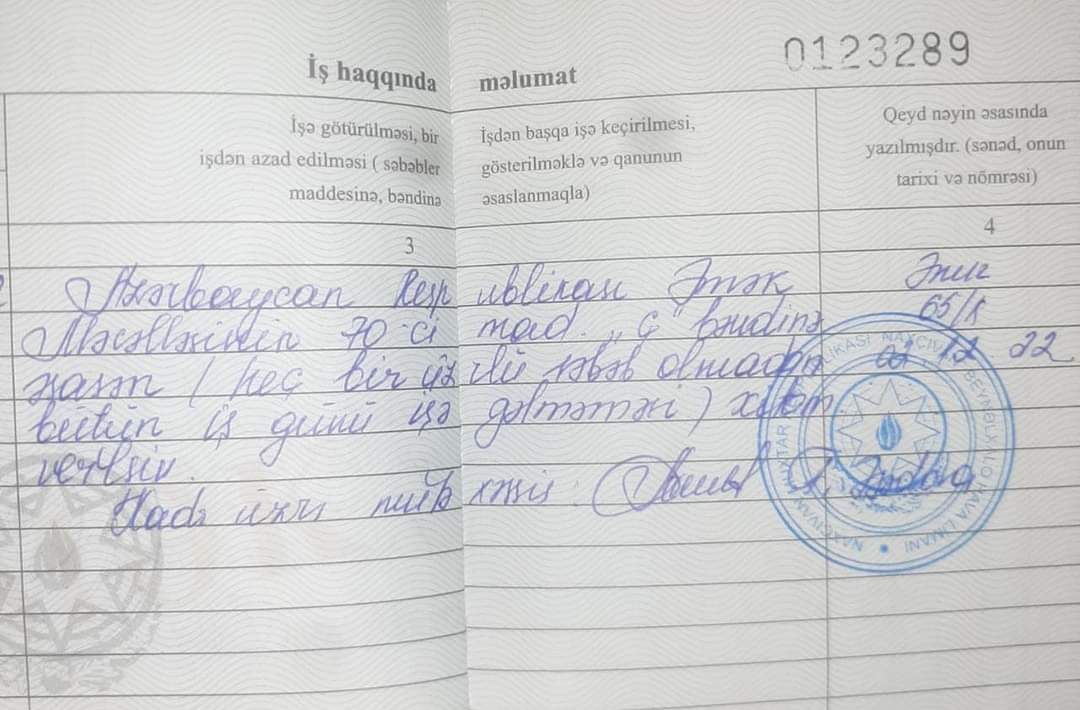 0123289
İş haqqında məlumat
İşə götürülməsi, bir işdən başqa işə keçirilmesi,
işdən azad edilməsi ( səbəblər gösterilməklə və qanunun
maddesinə, bəndinə əsaslanmaqla)
Qeyd nəyin əsasında
yazılmışdır. (sənəd, onun
tarixi və nömrəsi)
3
4
Azərbaycan Respublikası Əmək
Məcəlləsinin 70-ci mad. "ç" bəndinə
əsasən (heç bir üzrlü səbəb olmadan
bütün iş günü işə gəlməməsi) xitam
verilsin.
Kadr üzrə mütəxəssis:
Əmr
65/k
12.22
NAXÇIVAN
HAVA LİMANI